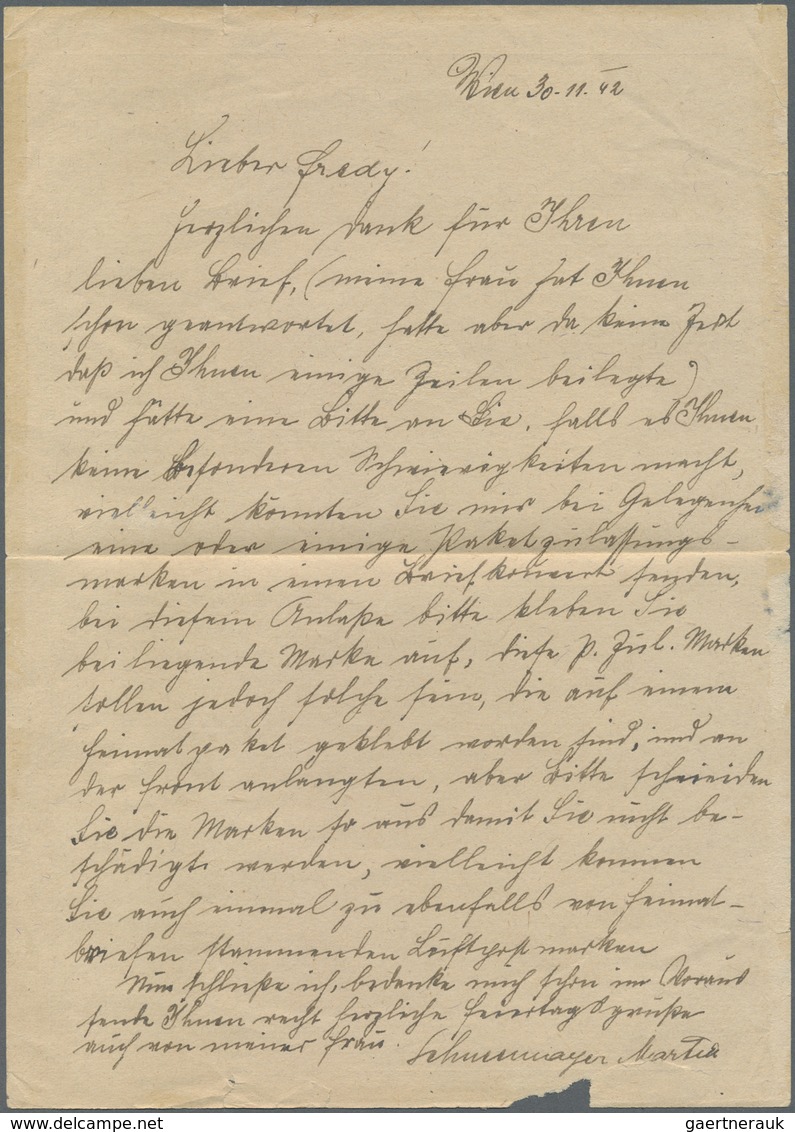 Wien 30-11.42
Lieber Fredy!
Herzlichen Dank für Ihren
lieben Brief, (meine Frau hat Ihnen
schon geantwortet, hatte aber da keine Zeit
daß ich Ihnen einige Zeilen beilegte)
und hätte eine Bitte an Sie, falls es Ihnen
keine besonderen Schwierigkeiten macht,
vielleicht könnten Sie mir bei Gelegenhei
eine oder einige Paketzulassungs-
marken in einen Briefkouvert senden,
bei diesem Anlaße bitte kleben Sie
beiliegende Marke auf, diese P. Zul. Marken
sollen jedoch solche sein, die auf einem
Heimatpaket geklebt worden sind, und an
der Front anlangten, aber Bitte schneiden
Sie die Marken so aus damit Sie nicht be-
schädigt werden, vielleicht kommen
Sie auch einmal zu ebenfalls von Heimat-
briefen stammenden Luftpostmarken
Nun schließe ich, bedanke mich schon im Voraus
sende Ihnen recht herzliche Feiertagsgrüße
auch von meiner Frau.
Martin
gaertnerauk